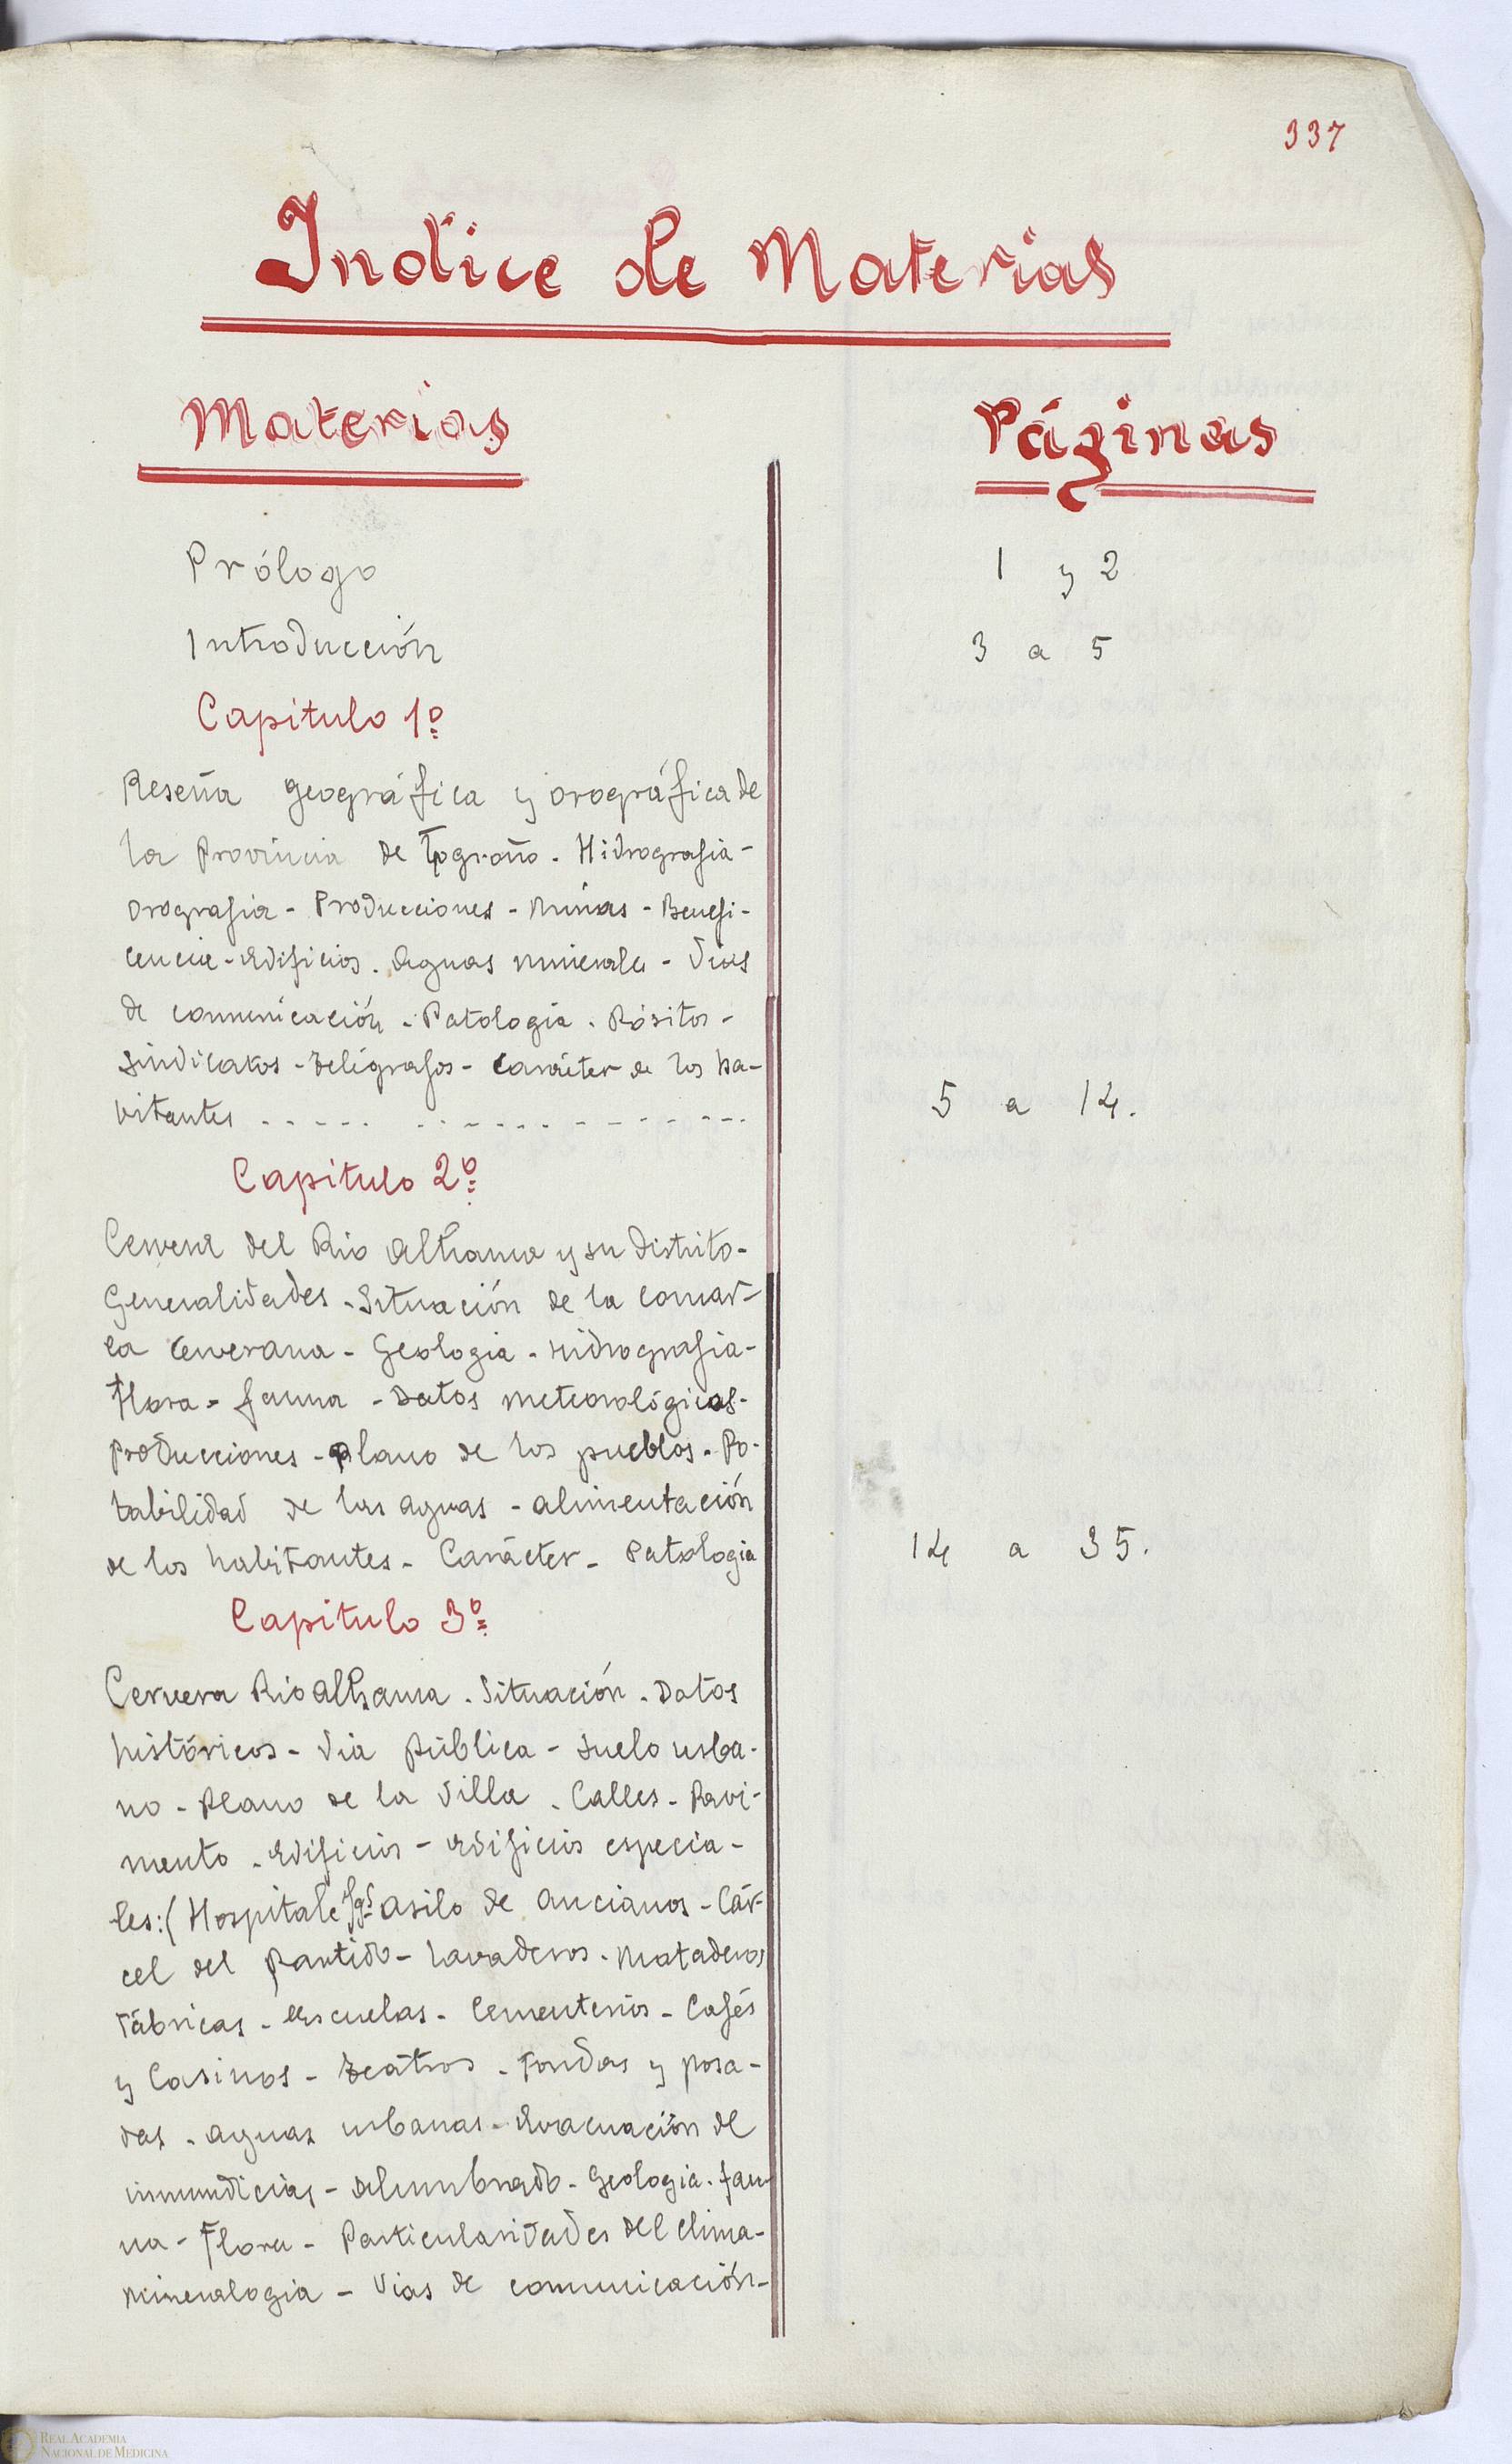 337
Indice de Materias
Materias
Páginas
Prólogo
1 y 2
Introducción
3 a 5
Capitulo 1º
Reseña geográfica y orográfica de
la Provincia de Logroño. Hidrografia-
Orografia - Producciones - Minas - Benefi-
cencia - Edificios. Aguas minerales - Vias
de comunicación. Patologia. Pósitos -
Sindicatos - Telégrafos - Carácter de los ha-
bitantes . . . . . . . . . . . . . . . . .
5 a 14.
Capitulo 2º
Cervera del Rio Alhama y su Distrito-
Generalidades. Situación de la Comar-
ca Cerverana - Geologia. Hidrografia-
Flora - fauna - Datos meteorológicos-
Producciones - Plano de los pueblos. Po-
tabilidad de las aguas - Alimentación
de los habitantes - Carácter - Patologia
14 a 35.
Capitulo 3º
Cervera Rio Alhama. Situación. Datos
históricos - Via pública - Suelo urba-
no - Plano de la Villa. Calles - Pavi-
mento. Edificios - Edificios especia-
les:( Hospital Asilo de Ancianos - Cár-
cel del Partido - Lavaderos. Mataderos
Fábricas - Escuelas - Cementerios - Cafés
y Casinos - Teatros. Fondas y posa-
das. Aguas urbanas - Evacuación de
inmundicias - Alumbrado - Geologia. fau-
na - Flora - Particularidades del clima-
Mineralogia - Vias de comunicación-
REAL ACADEMIA
NACIONAL DE MEDICINA